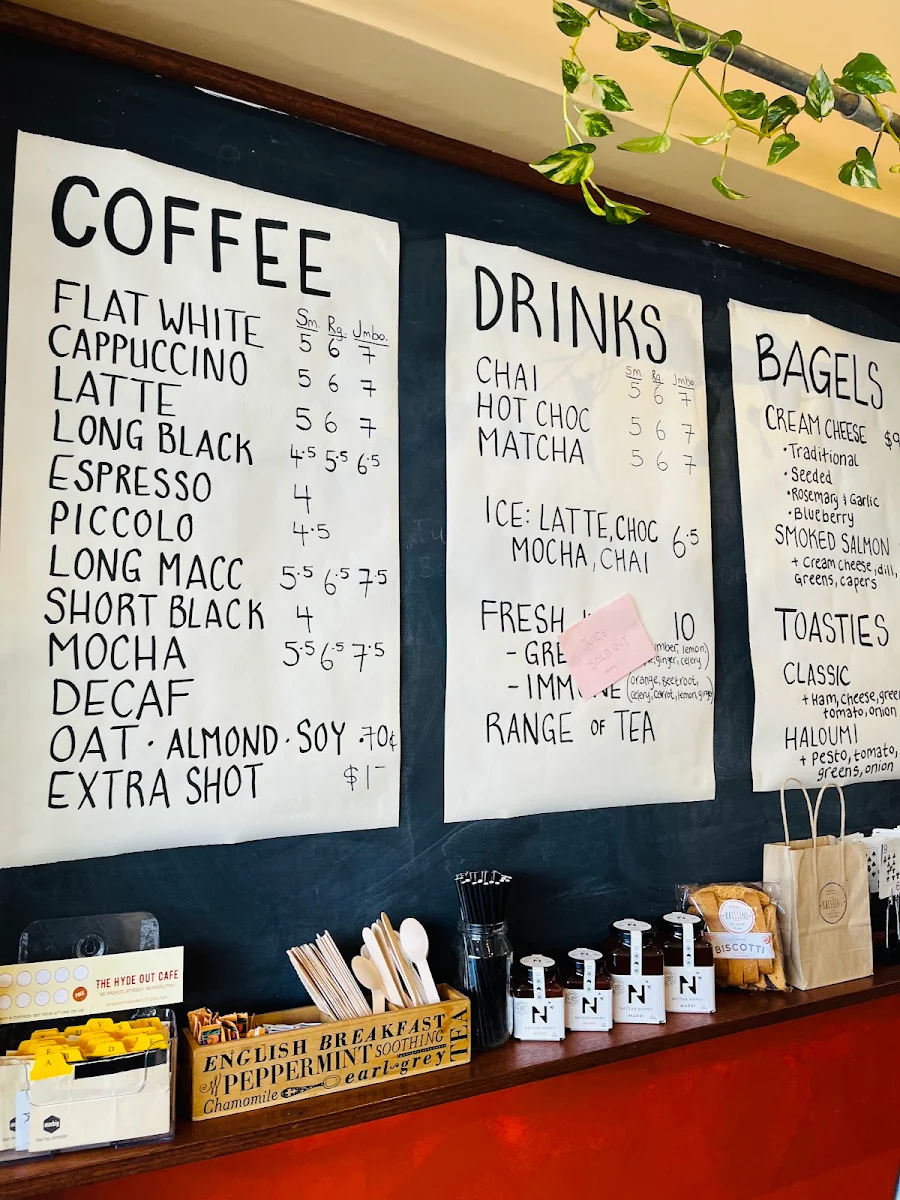 COFFEE
Sm. Rg. Jmbo.
FLAT WHITE 5 6 7
CAPPUCCINO 5 6 7
LATTE 5 6 7
LONG BLACK 4.5 5.5 6.5
ESPRESSO 4
PICCOLO 4.5
LONG MACC 5.5 6.5 7.5
SHORT BLACK 4
MOCHA 5.5 6.5 7.5
DECAF
OAT · ALMOND · SOY .70¢
EXTRA SHOT $1-
DRINKS
Sm Rg Jmbo
CHAI 5 6 7
HOT CHOC 5 6 7
MATCHA 5 6 7
ICE: LATTE, CHOC 6.5
MOCHA, CHAI
FRESH 10
- GRE lemon)
ginger, celery)
- IMM NE (orange, beetroot,
celery, carrot, lemon, ginger)
RANGE OF TEA
JUICE
SOLD OUT
BAGELS
CREAM CHEESE $9
• Traditional
• Seeded
• Rosemary & Garlic
• Blueberry
SMOKED SALMON
+ cream cheese, dill,
greens, capers
TOASTIES
CLASSIC
+ Ham, cheese, gree
tomato, onion
HALOUMI
+ pesto, tomato,
greens, onion
THE HYDE OUT CAFE
FREE
A
D
ENGLISH BREAKFAST
PEPPERMINT SOOTHING
Chamomile earl grey
TEA
N
N
N
N
BISCOTTI